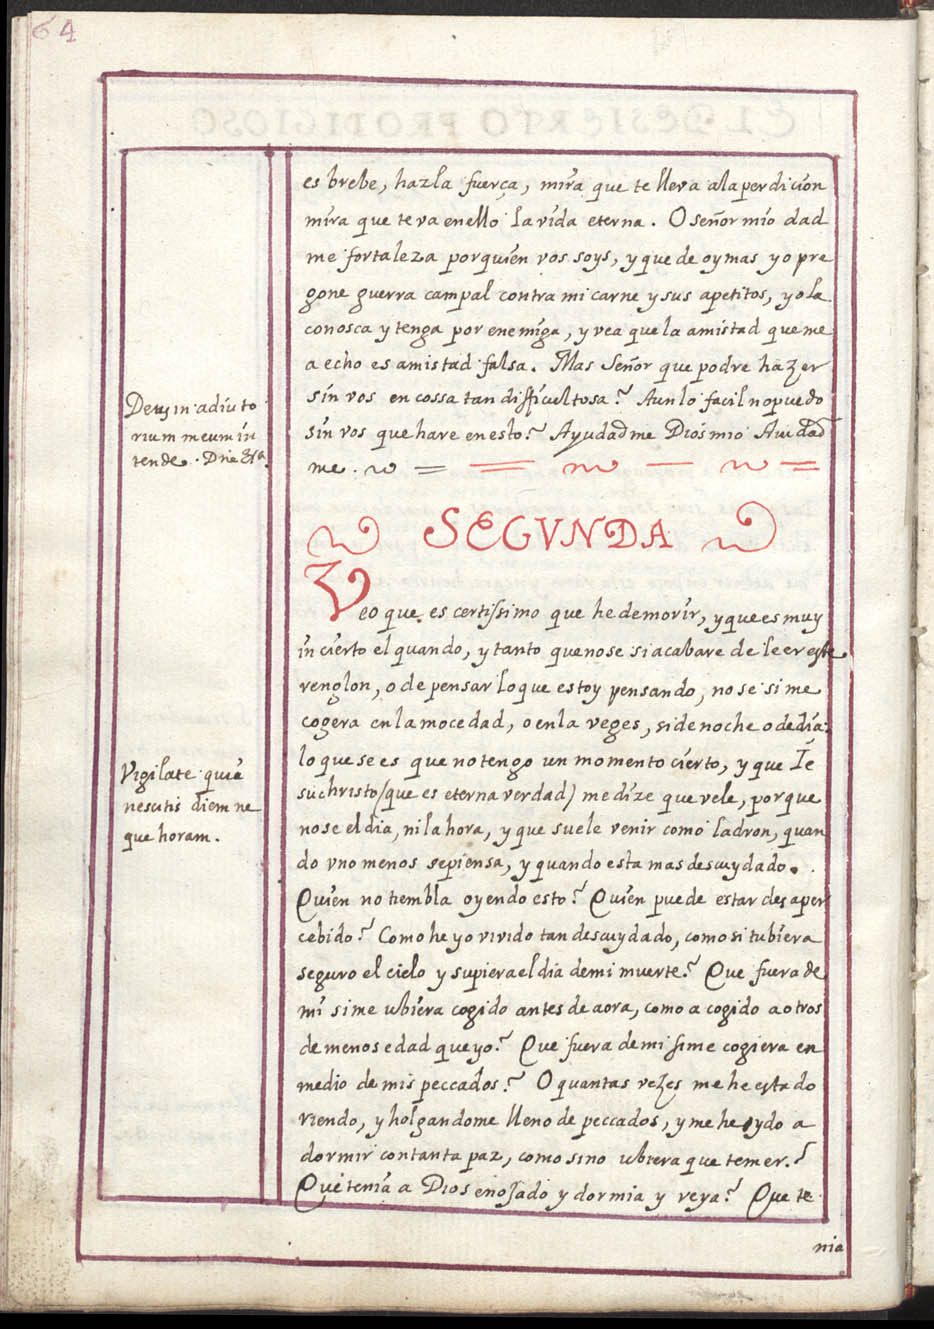 64
es brebe, hazla fuerça, mira que te lleva ala perdicion
mira que te va en ello la vida eterna. O señor mio dad
me fortaleza por quien vos soys, y que de oy mas yo pre
gone guerra campal contra mi carne y sus apetitos, yo la
conosca y tenga por enemiga, y vea que la amistad que me
a echo es amistad falsa. Mas Señor que podre hazer
sin vos en cossa tan difficultosa? Aun lo facil no puedo
sin vos que hare en esto? Ayudadme Dios mio Auidad
me.
Deus in adiuto
rium meum in
tende.
SEGVNDA
Veo que es certissimo que he de morir, y que es muy
incierto el quando, y tanto que no se si acabare de leer este
renglon, o de pensar lo que estoy pensando, no se si me
cogera en la mocedad, o en la veges, si de noche o de dia:
lo que se es que no tengo un momento cierto, y que Ie
suchristo (que es eterna verdad) me dize que vele, porque
no se el dia, ni la hora, y que suele venir como ladron, quan
do vno menos se piensa, y quando esta mas descuydado.
Vigilate quiē
nescitis diem ne
que horam.
Quien no tiembla oyendo esto? Quien puede estar desaper
cebido? Como he yo vivido tan descuydado, como si tubiera
seguro el cielo y supiera el dia de mi muerte? Que fuera de
mi si me ubiera cogido antes de aora, como a cogido a otros
de menos edad que yo? Que fuera de mi si me cogiera en
medio de mis peccados? O quantas vezes me he estado
riendo, y holgandome lleno de peccados, y me he ydo a
dormir con tanta paz, como si no ubiera que temer?
Que tenia a Dios enojado y dormia y reya? Que te
nia